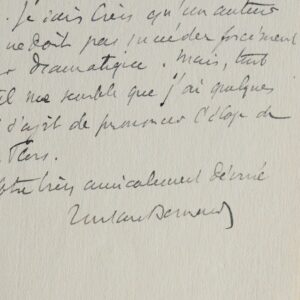 . Je sais très qu'un auteur
ne doit pas succéder forcément
dramatique. Mais, tout
il me semble que j'ai quelques
s'agit de prononcer l'éloge de
Flers.
Votre très amicalement dévoué
Tristan Bernard